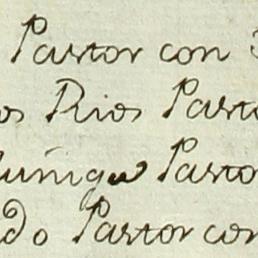 Pastor con
os Rios Pasto
uñiga Pasto
do Pastor con